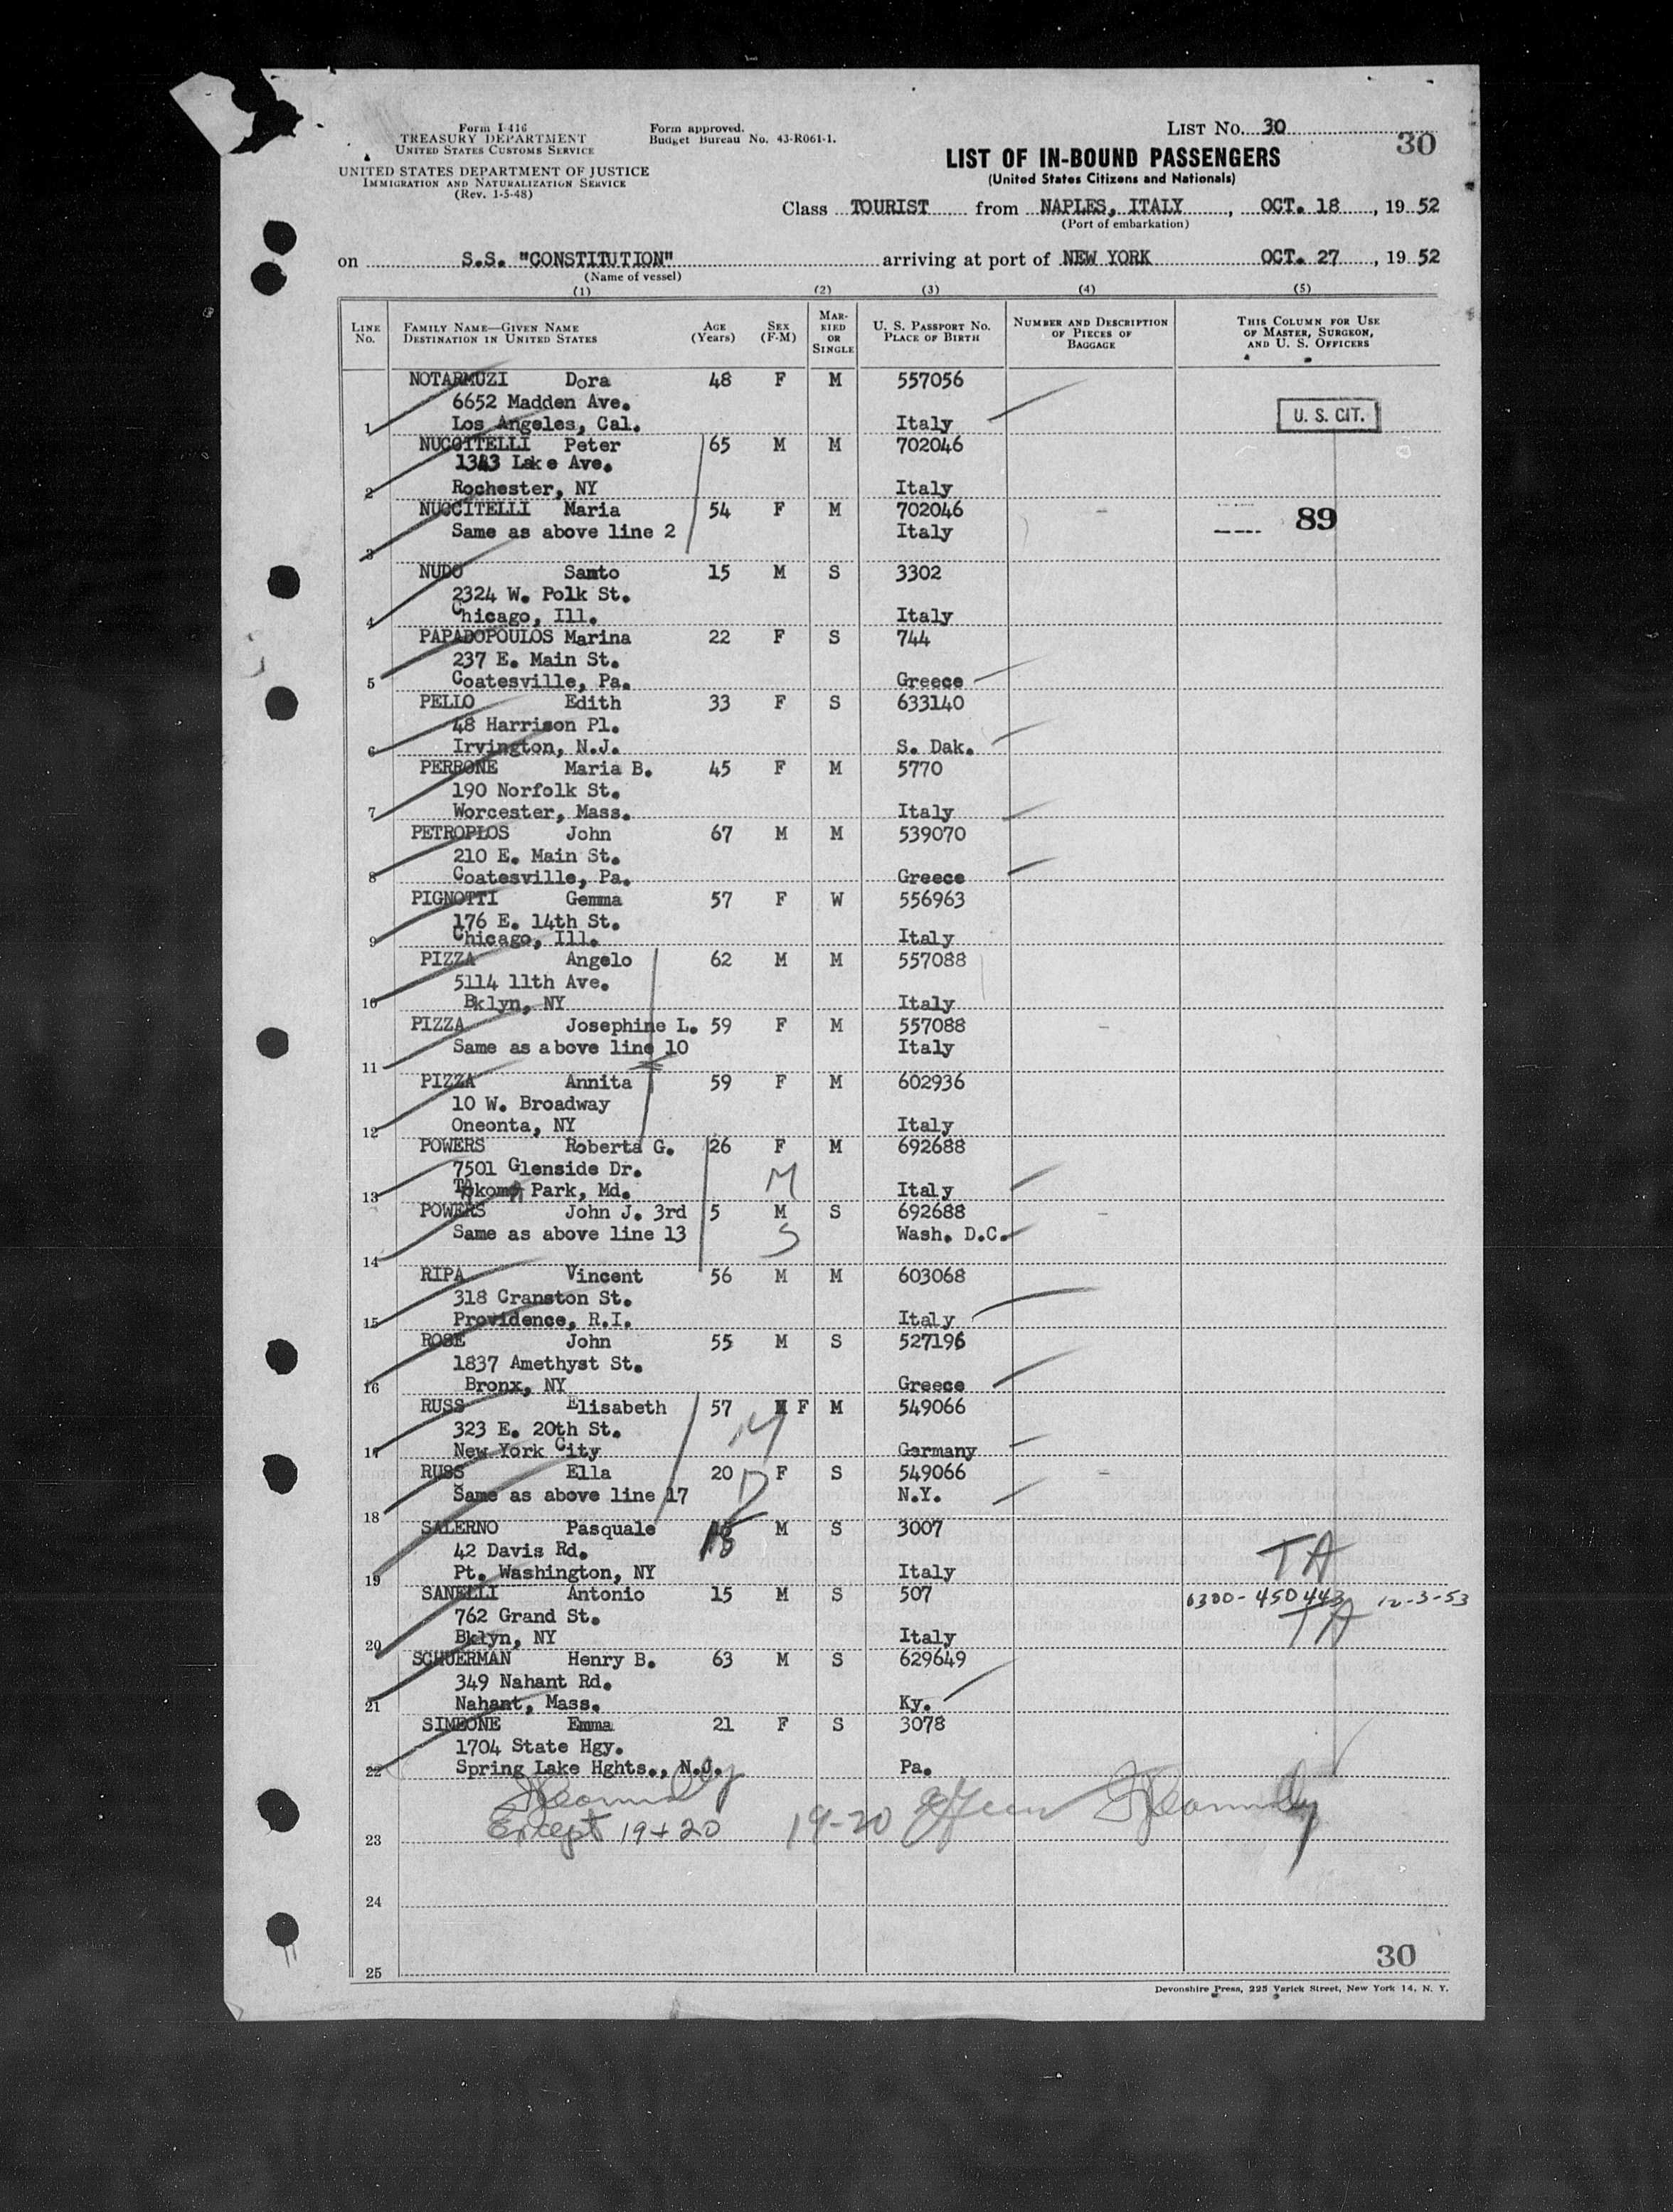 Form I-416
TREASURY DEPARTMENT
UNITED STATES CUSTOMS SERVICE
UNITED STATES DEPARTMENT OF JUSTICE
IMMIGRATION AND NATURALIZATION SERVICE
(Rev. 1-5-48)
Form approved.
Budget Bureau No. 43-R061-1.
LIST No. 30
30
LIST OF IN-BOUND PASSENGERS
(United States Citizens and Nationals)
Class TOURIST from NAPLES, ITALY, OCT. 18, 1952
(Port of embarkation)
on S.S. "CONSTITUTION" arriving at port of NEW YORK OCT. 27, 1952
(Name of vessel)
(1) (2) (3) (4) (5)
LINE No. FAMILY NAME—GIVEN NAME DESTINATION IN UNITED STATES AGE (Years) SEX (F-M) MARRIED OR SINGLE U. S. PASSPORT No. PLACE OF BIRTH NUMBER AND DESCRIPTION OF PIECES OF BAGGAGE THIS COLUMN FOR USE OF MASTER, SURGEON, AND U. S. OFFICERS
NOTARMUZI Dora 48 F M 557056
6652 Madden Ave.
U. S. CIT.
1 Los Angeles, Cal. Italy
NUCCITELLI Peter 65 M M 702046
1343 Lake Ave.
2 Rochester, NY Italy
NUCCITELLI Maria 54 F M 702046
89
Same as above line 2 Italy
3
NUDO Santo 15 M S 3302
2324 W. Polk St.
4 Chicago, Ill. Italy
PAPADOPOULOS Marina 22 F S 744
237 E. Main St.
5 Coatesville, Pa. Greece
PELLO Edith 33 F S 633140
48 Harrison Pl.
6 Irvington, N.J. S. Dak.
PERRONE Maria B. 45 F M 5770
190 Norfolk St.
7 Worcester, Mass. Italy
PETROPLOS John 67 M M 539070
210 E. Main St.
8 Coatesville, Pa. Greece
PIGNOTTI Gemma 57 F W 556963
176 E. 14th St.
9 Chicago, Ill. Italy
PIZZA Angelo 62 M M 557088
5114 11th Ave.
10 Bklyn, NY Italy
PIZZA Josephine L. 59 F M 557088
Same as above line 10 Italy
11
PIZZA Annita 59 F M 602936
10 W. Broadway
12 Oneonta, NY Italy
POWERS Roberta G. 26 F M 692688
7501 Glenside Dr. M
13 Takoma Park, Md. Italy
POWERS John J. 3rd 5 M S 692688
Same as above line 13 S Wash. D.C.
14
RIPA Vincent 56 M M 603068
318 Cranston St.
15 Providence, R.I. Italy
ROSE John 55 M S 527196
1837 Amethyst St.
16 Bronx, NY Greece
RUSS Elisabeth 57 F M 549066
323 E. 20th St. M
17 New York City Germany
RUSS Ella 20 F S 549066
Same as above line 17 D N.Y.
18
SALERNO Pasquale 15 M S 3007
42 Davis Rd. TA
19 Pt. Washington, NY Italy
SANELLI Antonio 15 M S 507 6300-450443 12-3-53
762 Grand St. TA
20 Bklyn, NY Italy
SCHUERMAN Henry B. 63 M S 629649
349 Nahant Rd.
21 Nahant, Mass. Ky.
SIMEONE Emma 21 F S 3078
1704 State Hgy.
22 Spring Lake Hghts., N.J. Pa.
Except 19+20 19-20
23
24
30
25
Devonshire Press, 225 Varick Street, New York 14, N. Y.